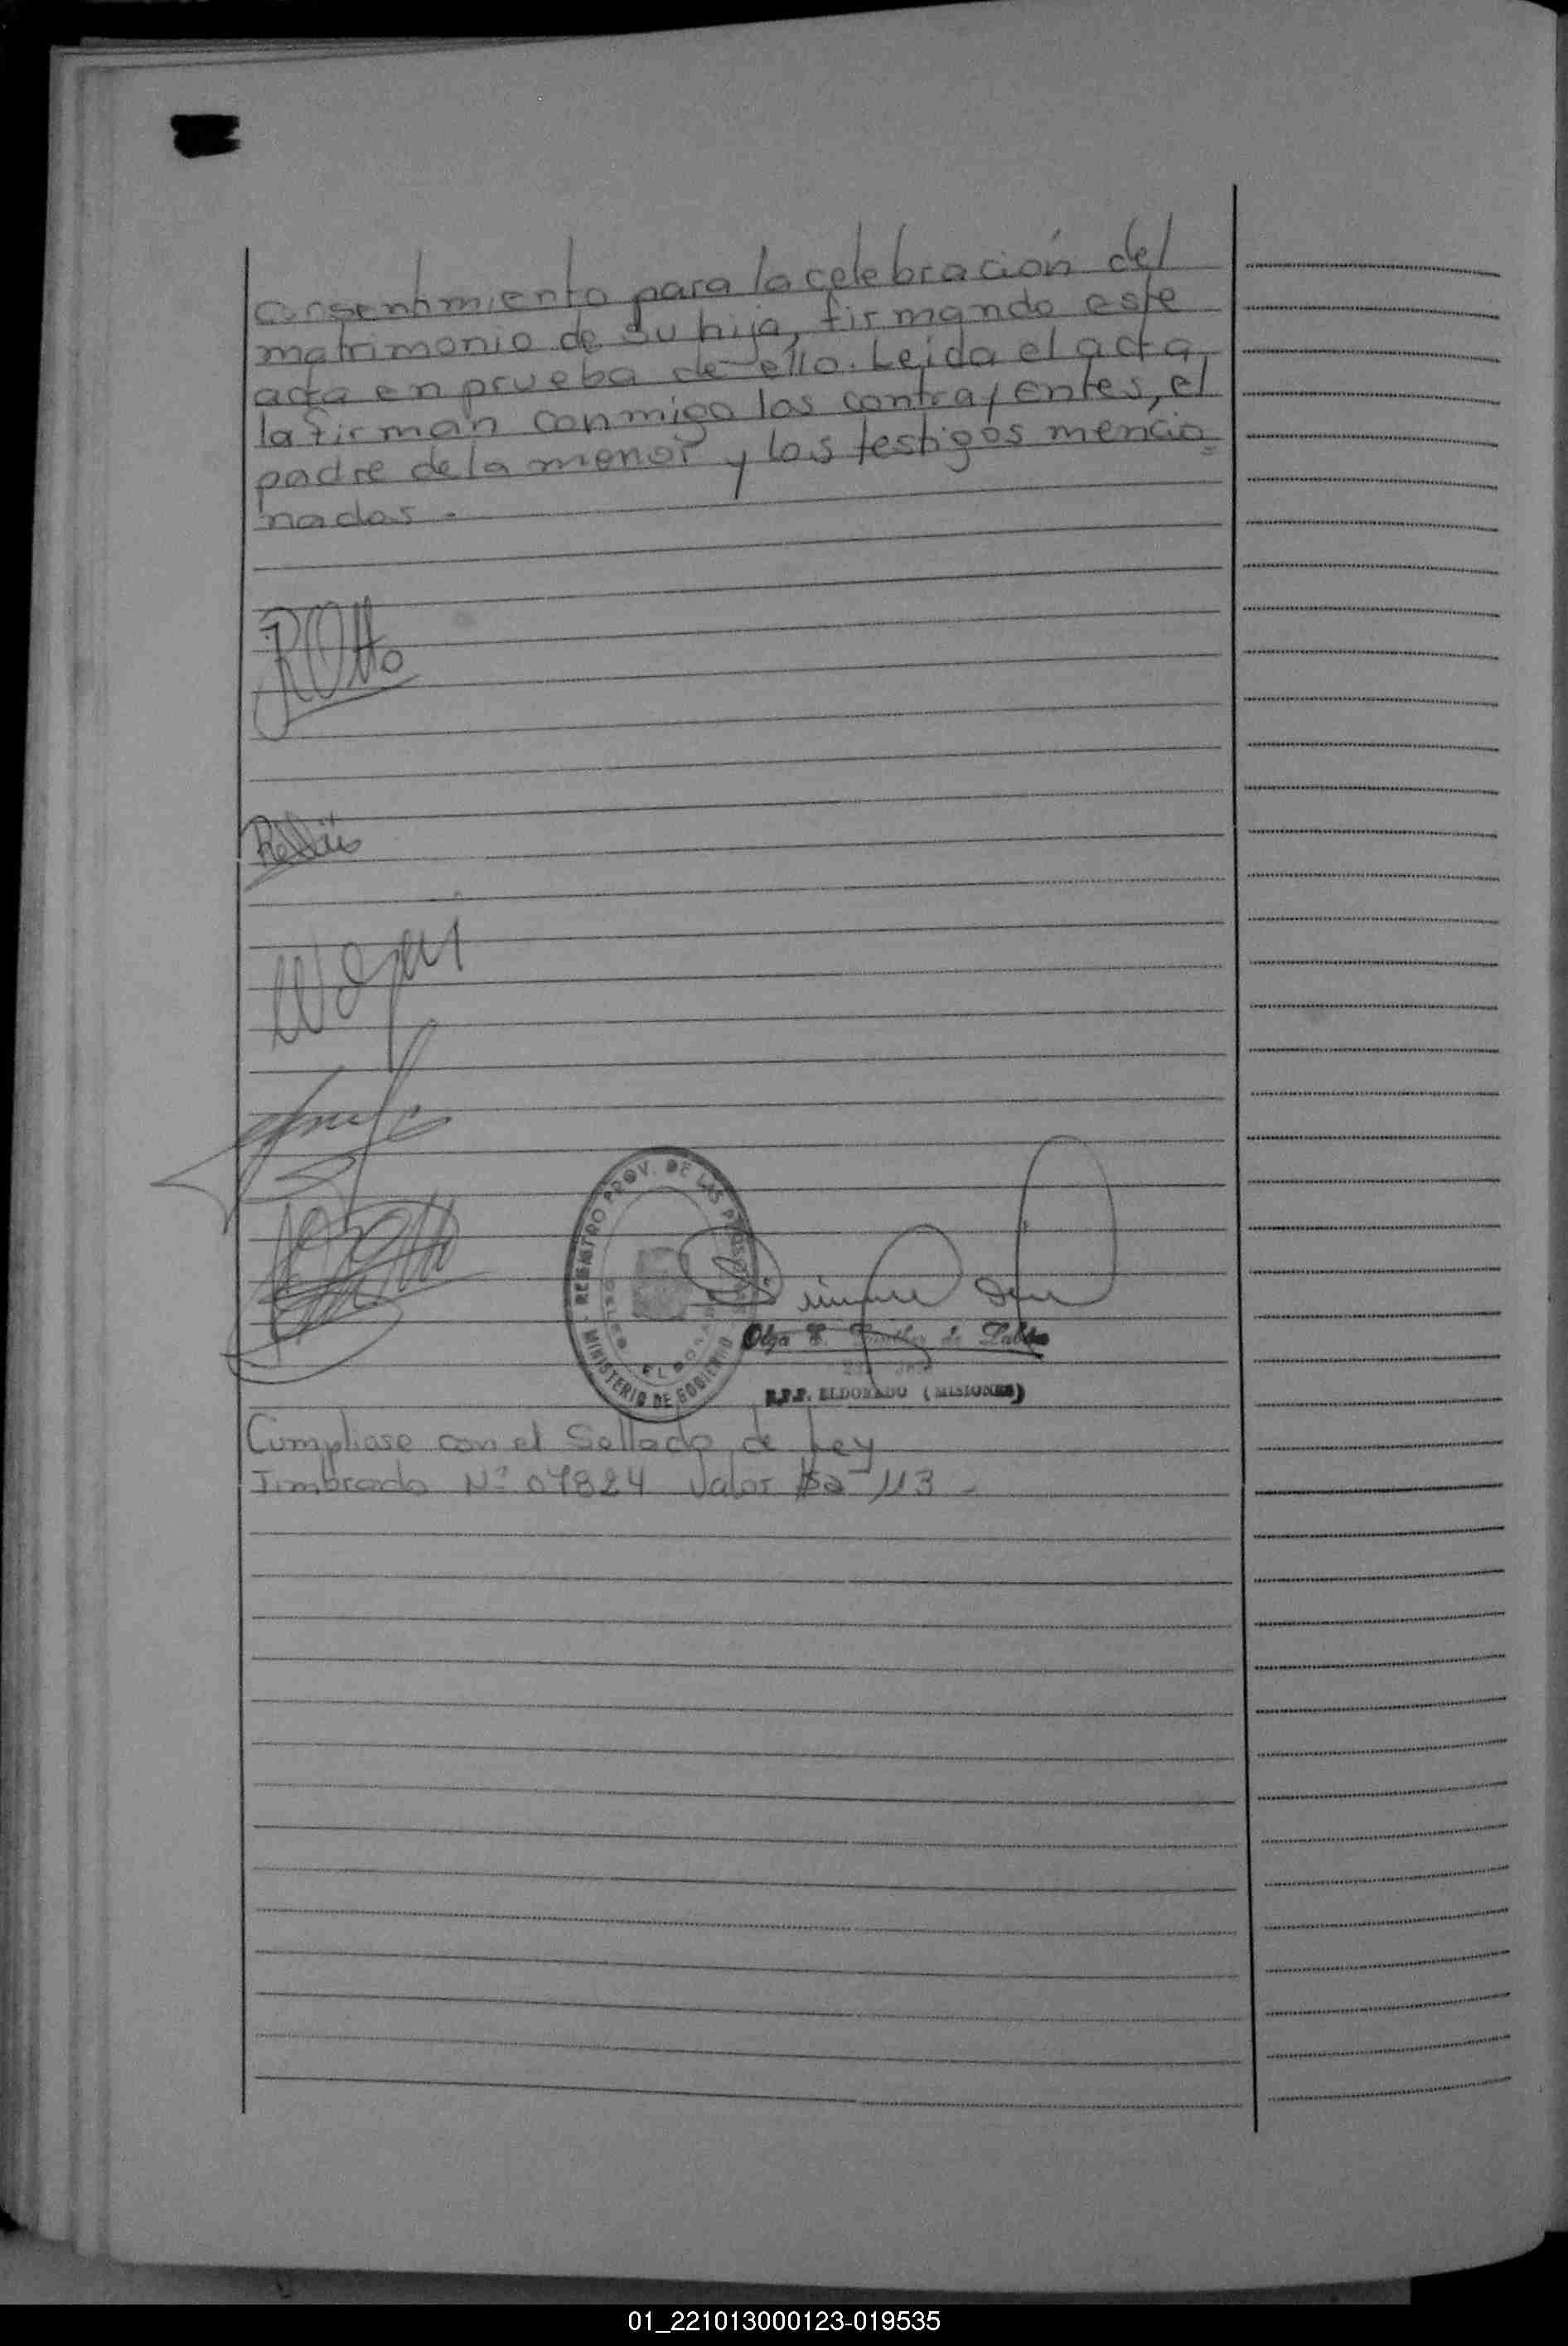 consentimiento para la celebración del
matrimonio de su hija, firmando este
acta en prueba de ello. Leida el acta,
la firman conmigo los contrayentes, el
padre de la menor y los testigos mencio=
nados.-
ROtto
REGISTRO PROV. DE LAS PERSONAS
MINISTERIO DE GOBIERNO
Olga
R.P.P. ELDORADO (MISIONES)
Cumpliase con el Sellado de Ley
Timbrado Nº 07824 Valor $a 113-
01_221013000123-019535